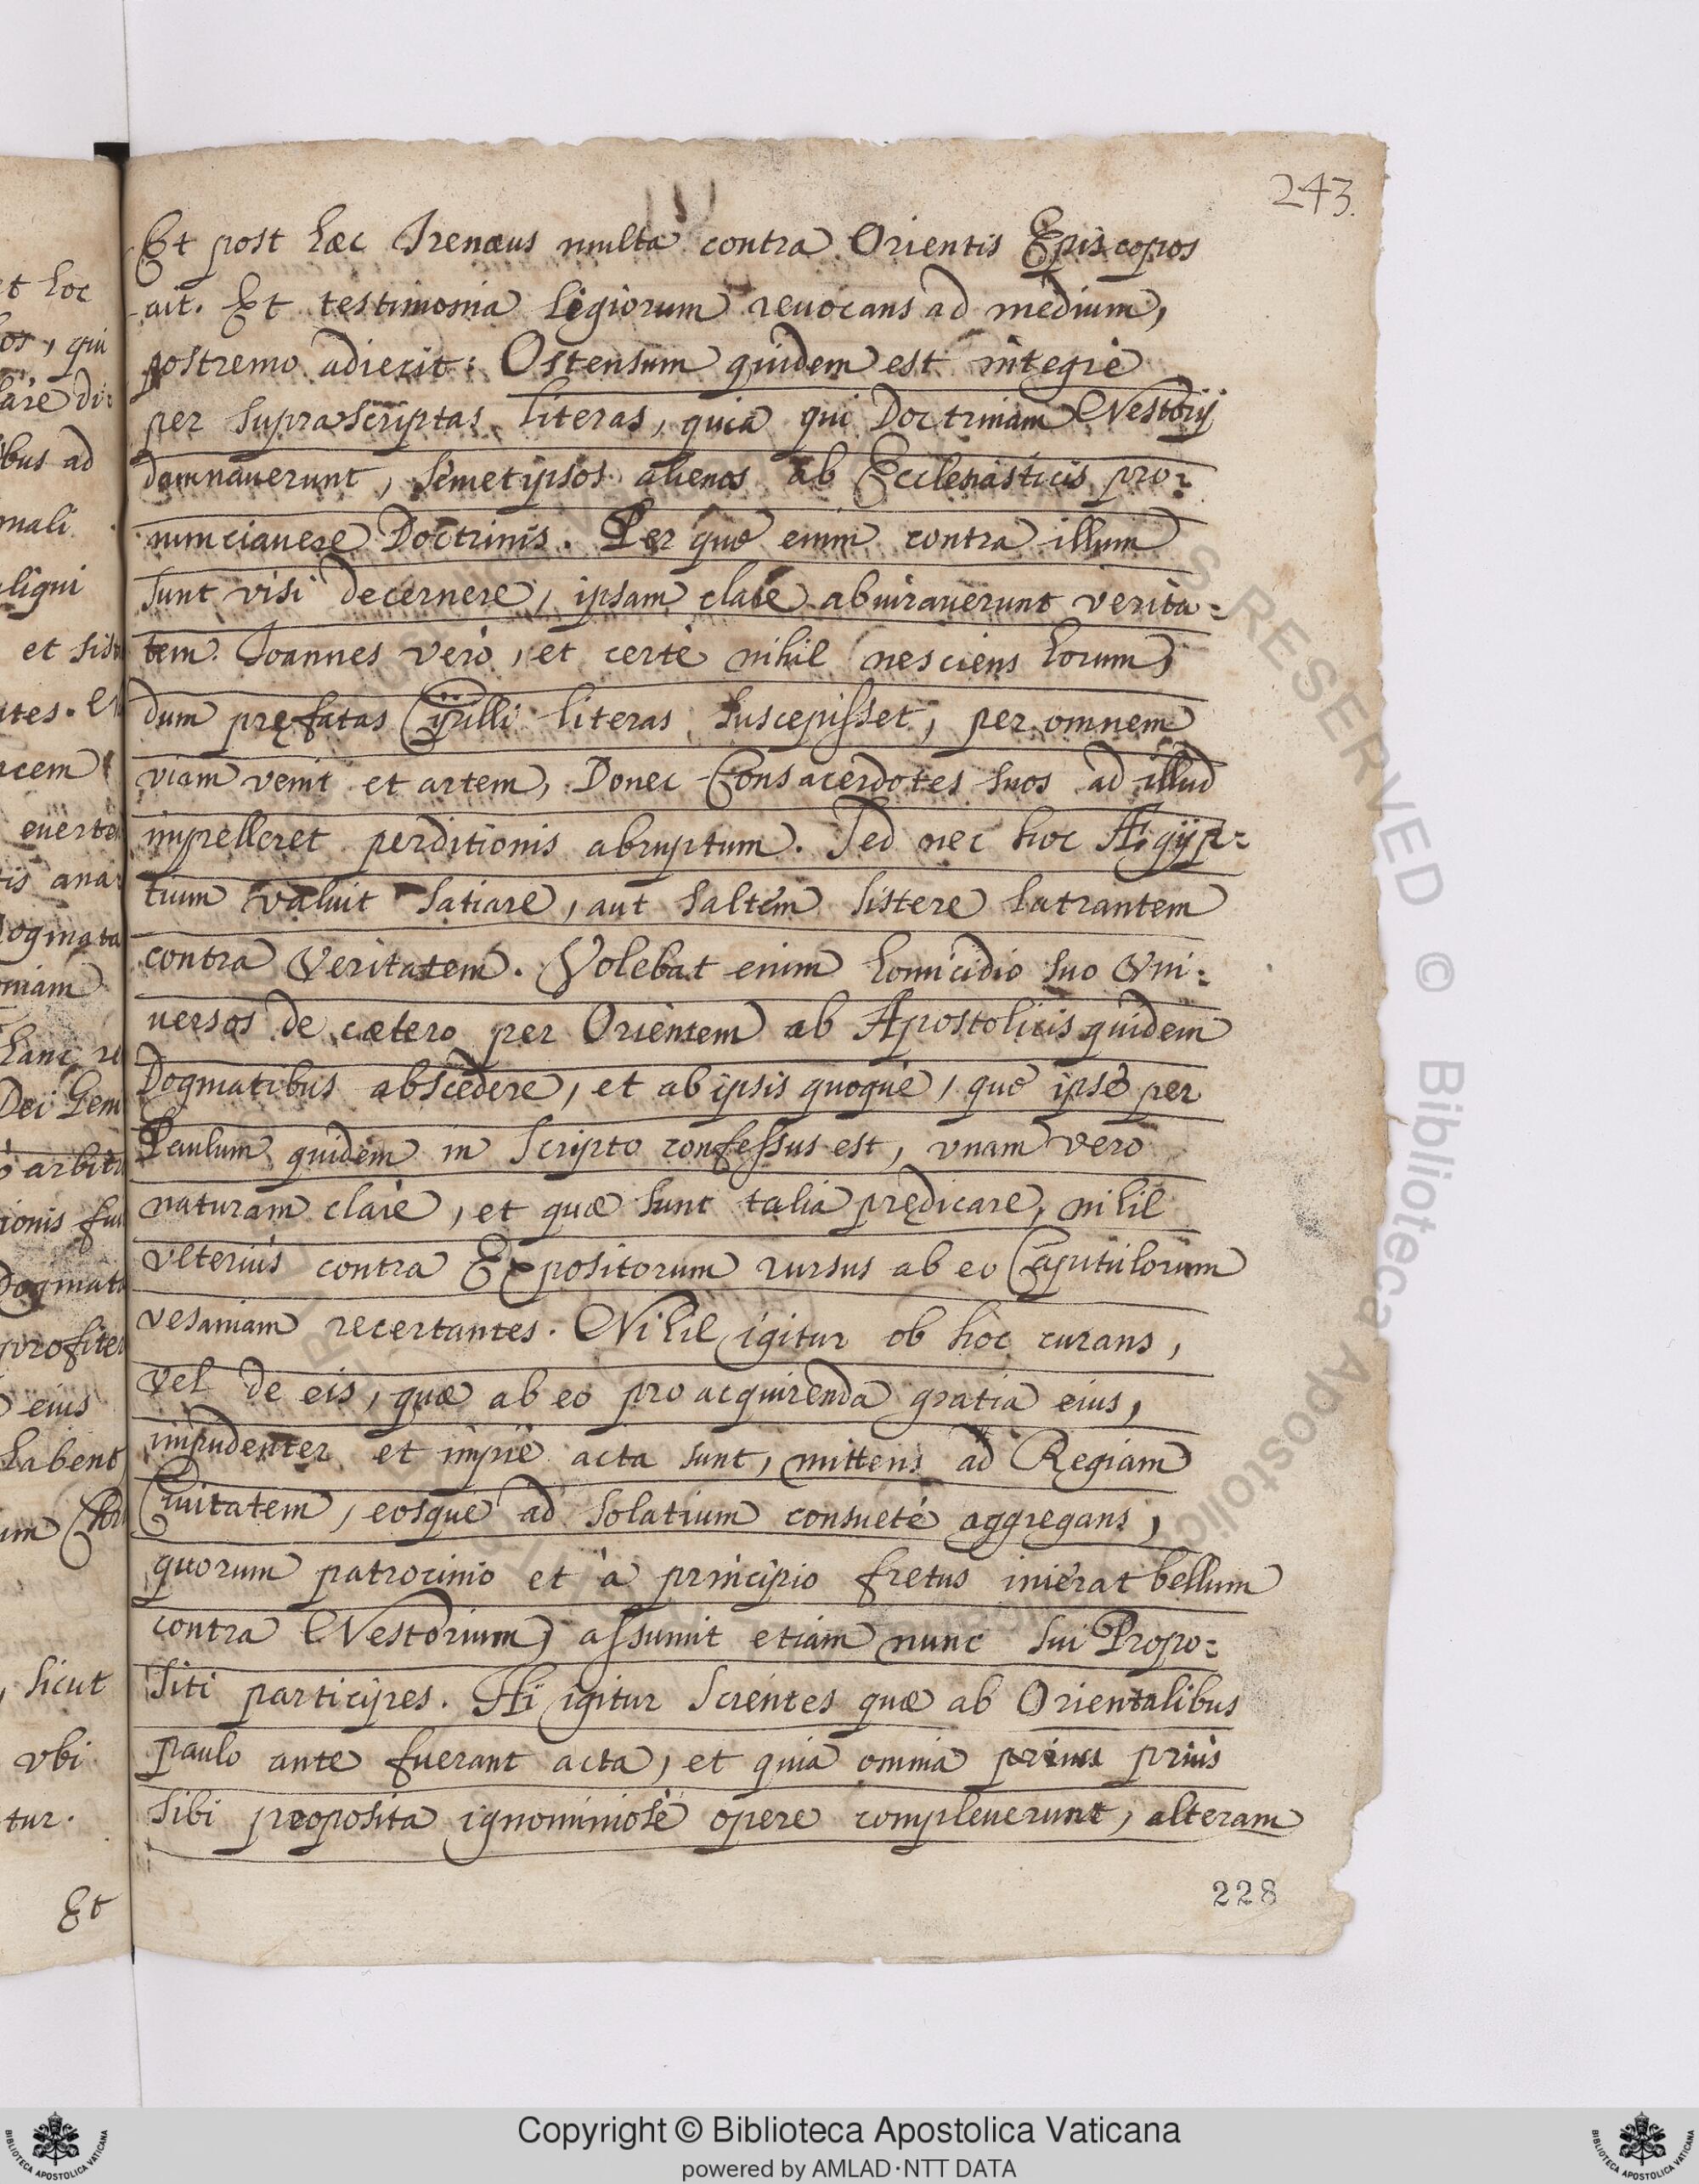 243.
Et post hæc Irenæus multa contra Orientis Episcopos
ait. Et testimonia legiorum reuocans ad medium,
postremo adiecit: Ostensum quidem est integrè
per suprascriptas literas, quia qui Doctrinam Nestorij
damnauerunt, semetipsos alienos ab Ecclesiasticis pro=
nunciauere Doctrinis. Per quę enim contra illum
sunt visi decernere, ipsam clarè abiurauerunt verita=
tem. Ioannes verò, et certè nihil nesciens horum,
dum pręfatas Cÿrilli literas suscepisset, per omnem
viam venit et artem, Donec Consacerdotes suos ad illud
impelleret perditionis abruptum. Sed nec hoc Ægÿp=
tium valuit satiare, aut saltèm sistere latrantem
contra Veritatem. Volebat enim homicidio suo Vni=
uersos de cætero per Orientem ab Apostolicis quidem
Dogmatibus abscedere, et ab ipsis quoque, quę ipse per
Paulum quidem in Scripto confessus est, vnam vero
naturam clarè, et quæ sunt talia prędicare, nihil
vlterius contra Expositorum rursus ab eo Capitulorum
vesaniam recertantes. Nihil igitur ob hoc curans,
vel de eis, quæ ab eo pro acquirenda gratia eius,
impudenter et impiè acta sunt, mittens ad Regiam
Ciuitatem, eosque ad solatium consuetè aggregans,
quorum patrocinio et à principio fretus inierat bellum
contra Nestorium, assumit etiam nunc sui Propo=
siti participes. Hi igitur Scientes quæ ab Orientalibus
paulo ante fuerant acta, et quia omnia prius
sibi proposita ignominiosè opere compleuerunt, alteram
228
et hoc
qui
ad
ligui
et
euerte
ogmata
hanc
Dei Gem
arbit
ionis
Dogmat
profite
eius
habent
sicut
vbi
tur.
Et
Copyright © Biblioteca Apostolica Vaticana
powered by AMLAD·NTT DATA